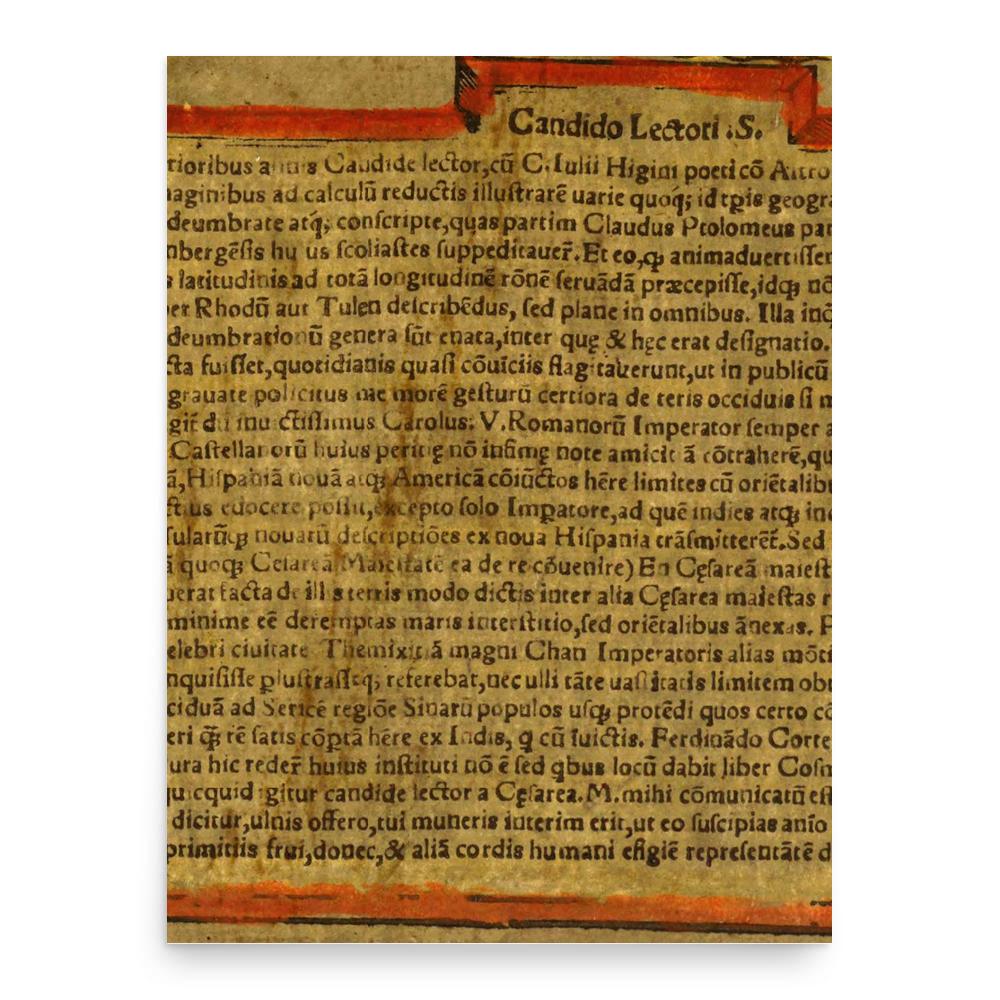 Candido Lectori .S.
rioribus annis Candide lector,cū C.Iulii Higini poeticō Astro
aginibus ad calculū reductis illustrarē uarie quoq́; id tꝑis geogra
deumbrate atq́; conscripte,quas partim Claudus Ptolomeus par
nbergēsis hu us scoliastes suppeditauer̄. Et eo,ꝙ animaduertissem
s latitudinis ad totā longitudinē rōnē seruādā præcepisse,idqꝫ nō
er Rhodū aut Tulen describēdus, sed plane in omnibus. Illa inq̄
deumbrationū genera sūt enata,inter quę & hęc erat designatio.
cta fuisset,quotidianis quasi cōuiciis flagitauerunt,ut in publicū
grauate policitus me morē gesturū certiora de teris occiduis si m
inuictissimus Carolus: V. Romanorū Imperator semper a
Castellanorū huius peritię nō infimę note amicit ā cōtraherē,qu
ā,Hispaniā nouā atqꝫ Americā cōiūctos hēre limites cū oriētalibu
ct us edocere possit,excepto solo Imꝑatore,ad quē indies atqꝫ in
sularūqꝫ nouarū descriptiōes ex noua Hispania trāsmitterēt̄. Sed
ā quoqꝫ Cesarea Maiestatē ea de re cōuenire) En Cęsareā maiest
uerat facta de ill s terris modo dictis inter alia Cęsarea maiestas r
minime eē deremptas maris interstitio,sed oriētalibus ānexas. P
elebri ciuitate Themixitā magni Chan Imperatoris alias mōti
nquisisse referebat,nec ulli tāte uastitatis limitem obu
ciduā ad Sericē regiōe Sinarū populos usqꝫ protēdi quos certo cō
eri rē satis cōptā hēre ex Indis, q cū iuictis. Ferdinādo Corte
ura hic reder̄ huius instituti nō ē sed qbus locū dabit liber Cosm
quicquid igitur candide lector a Cęsarea.M. mihi cōmunicatū est
dicitur,ulnis offero,tui muneris interim erit,ut eo suscipias anīo
primitiis frui,donec,& aliā cordis humani efigiē representātē d